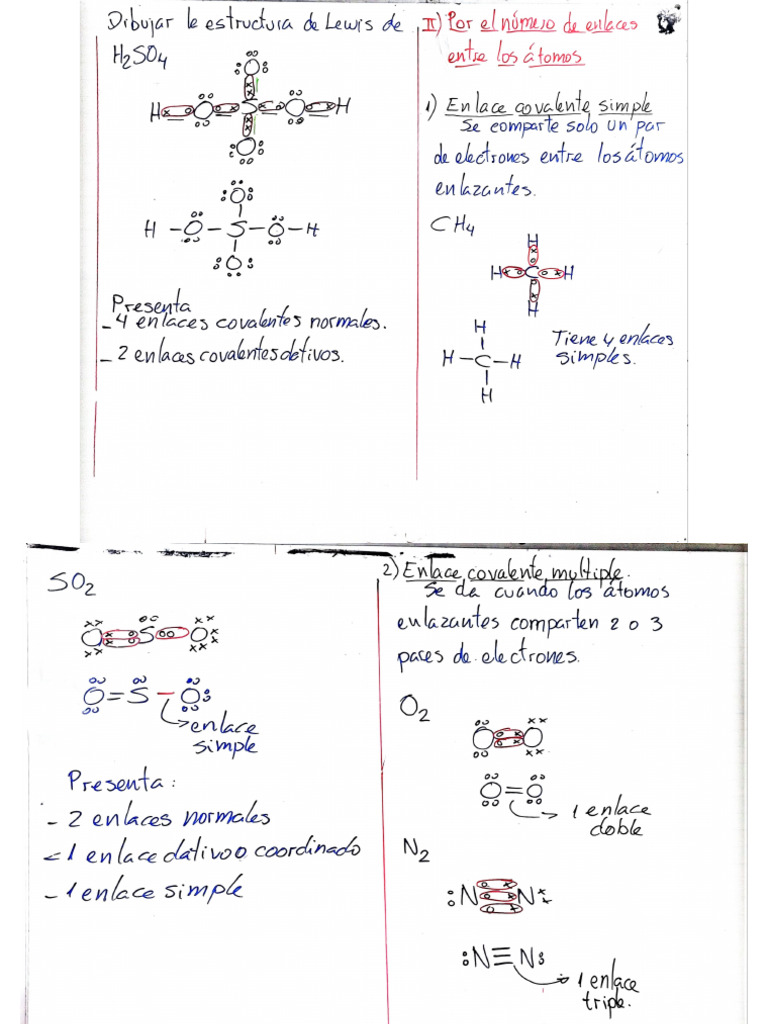 Dibujar le estructura de Lewis de
H2SO4
H O S O H
O
O
O
H - O - S - O - H
O
Presenta
- 4 enlaces covalentes normales.
- 2 enlaces covalentes dativos.
II) Por el número de enlaces
entre los átomos
1) Enlace covalente simple
Se comparte solo un par
de electrones entre los átomos
enlazantes.
CH4
H
H C H
H
H
H - C - H
H
Tiene 4 enlaces
simples.
SO2
O S O
O = S - O
enlace
simple
Presenta:
- 2 enlaces normales
- 1 enlace dativo o coordinado
- 1 enlace simple
2) Enlace covalente multiple.
Se da cuando los átomos
enlazantes comparten 2 o 3
pares de electrones.
O2
O O
O = O
1 enlace
doble
N2
N N
N ≡ N
1 enlace
triple.